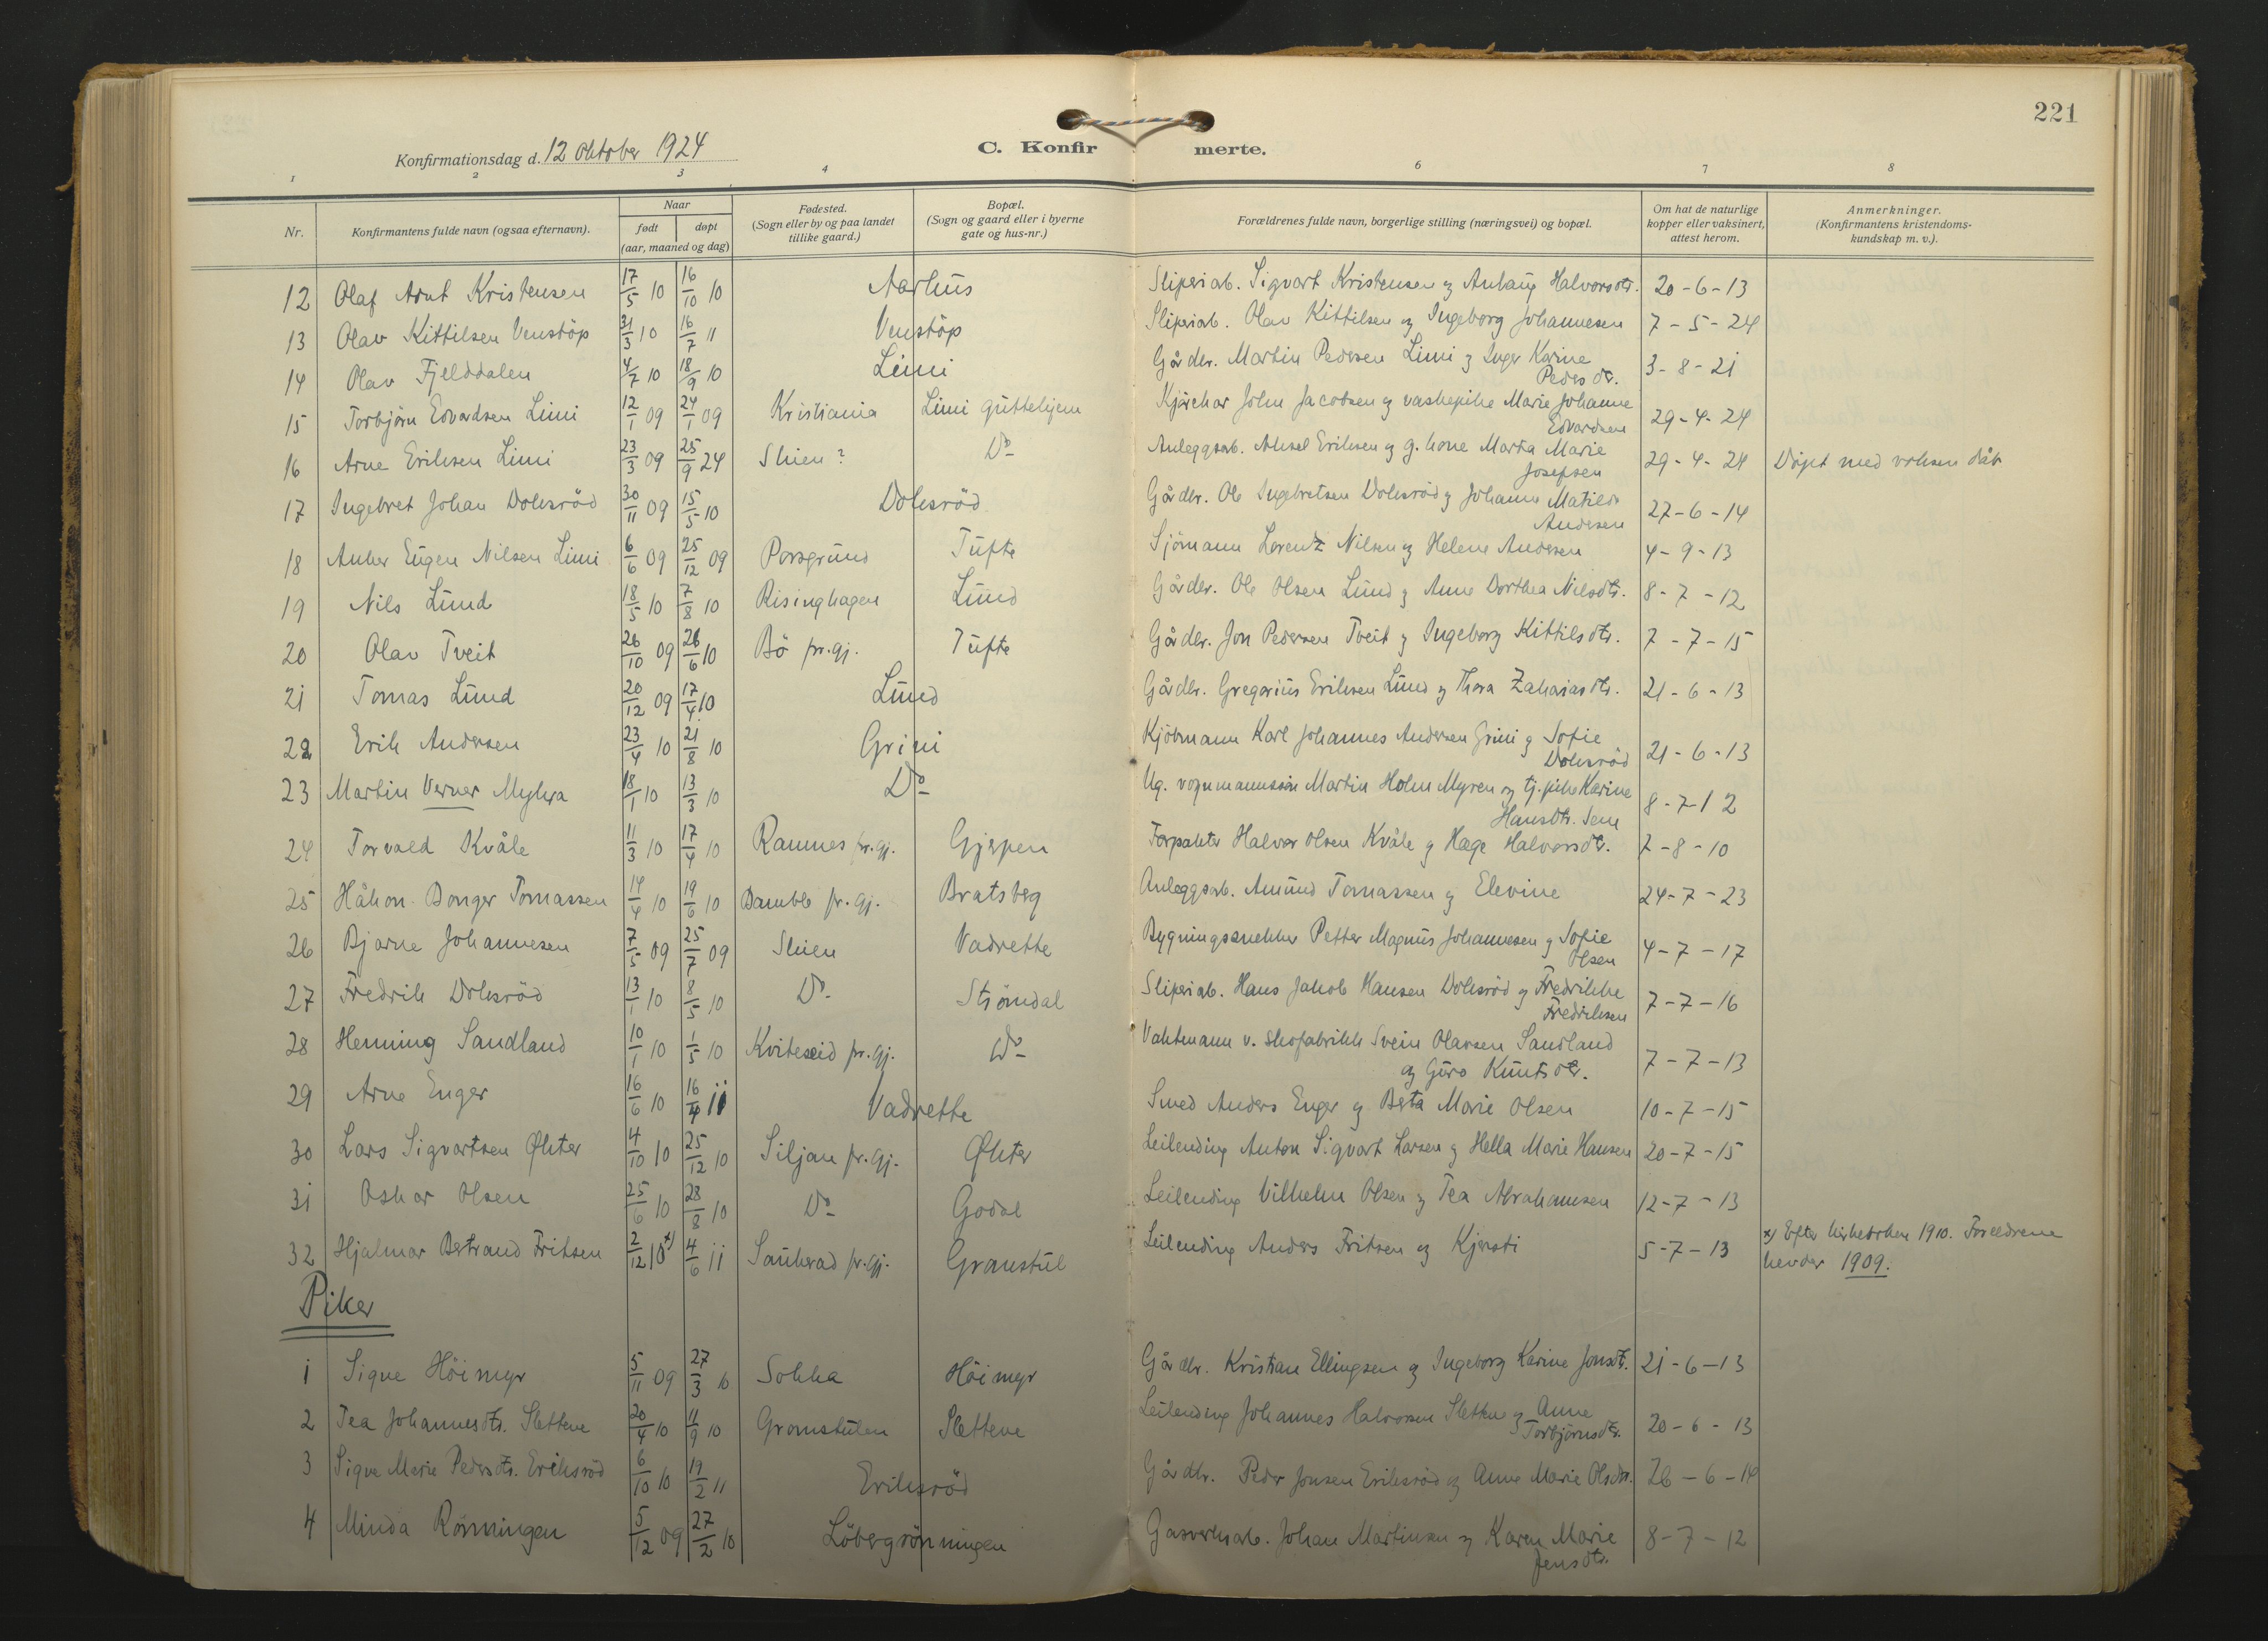 221
Konfirmationsdag d. 12 oktober 1924
C. Konfirmerte.
1 2 3 4 6 7 8
Nr. Konfirmantens fulde navn (ogsaa efternavn). Naar født døpt (aar, maaned og dag) Fødested. (Sogn eller by og paa landet tillike gaard.) Bopæl. (Sogn og gaard eller i byerne gate og hus-nr.) Forældrenes fulde navn, borgerlige stilling (næringsvei) og bopæl. Om hat de naturlige kopper eller vaksinert, attest herom. Anmerkninger. (Konfirmantens kristendomskundskap m. v.).
12 Olaf Arnt Kristensen 17/5 10 16/10 10 Aarhus Sliperiarb. Sigvart Kristensen og Anlaug Halvorsdtr. 20-6-13
13 Olav Kittilsen Venstöp 31/3 10 16/7 11 Venstöp Sliperiarb. Olav Kittilsen og Ingeborg Johannesen 7-5-24
14 Olav Fjelddalen 4/7 10 18/9 10 Limi Gårdbr. Martin Pedersen Limi og Inger Karine
Pedersdtr. 3-8-21
15 Torbjörn Edvardsen Limi 12/1 09 24/1 09 Kristiania Limi Guttehjem Kjörekar John Jacobsen og vaskepike Marie Johanne
Edvardsen 29-4-24
16 Arne Eriksen Limi 23/3 09 25/9 24 Skien? Do Anleggsarb. Aksel Eriksen og g. kone Marta Marie
Josefsen 29-4-24 Döpt med voksen dåb
17 Ingebret Johan Dolksröd 30/11 09 15/5 10 Dolksröd Gårdbr. Ole Ingebretsen Dolksröd og Johanne Matilde
Andersen 27-6-14
18 Anker Eugen Nilsen Limi 6/6 09 25/12 09 Porsgrund Tufte Sjömann Lorentz Nilsen og Helene Andersen 4-9-13
19 Nils Lund 18/5 10 7/8 10 Risinghagen Lund Gårdbr. Ole Olsen Lund og Anne Dorthea Nilsdtr. 8-7-12
20 Olav Tveit 26/10 09 26/6 10 Bö pr.gj. Tufte Gårdbr. Jon Pedersen Tveit og Ingeborg Kittilsdtr. 7-7-15
21 Tomas Lund 20/12 09 17/4 10 Lund Gårdbr. Gregorius Eriksen Lund og Thora Zakariasdtr. 21-6-13
22 Erik Andersen 23/4 10 21/8 10 Grini Kjöbmann Karl Johannes Andersen Grini og Sofie
Dolksröd 21-6-13
23 Martin Verner Myhra 18/1 10 13/3 10 Do Ug. vognmannssön Martin Holm Myren og tj.pike Karine
Hansdtr. Sem 8-7-12
24 Torvald Kvåle 11/3 10 17/4 10 Ramnes pr.gj. Gjerpen Forpakter Halvor Olsen Kvåle og Hæge Halvorsdtr. 7-8-10
25 Håkon Bonger Tomassen 14/4 10 19/6 10 Bamble pr.gj. Bratsberg Anleggsarb. Amund Tomassen og Elevine 24-7-23
26 Bjarne Johannesen 7/5 09 25/7 09 Skien Vadrette Bygningssnekker Petter Magnus Johannesen og Sofie
Olsen 4-7-17
27 Fredrik Dolksröd 13/1 10 8/5 10 Do Strömdal Sliperiarb. Hans Jakob Hansen Dolksröd og Fredrikke
Fredriksen 7-7-16
28 Henning Sandland 10/1 10 1/5 10 Kviteseid pr.gj. Do Vaktmann v. Skofabrikk Svein Olavsen Sandland
og Guro Knutsdtr. 7-7-13
29 Arne Enger 16/6 10 16/4 11 Vadrette Smed Anders Enger og Berta Marie Olsen 10-7-15
30 Lars Sigvartsen Økter 4/10 10 25/12 10 Siljan pr.gj. Økter Leilending Anton Sigvart Larsen og Hella Marie Hansen 20-7-15
31 Oskar Olsen 25/6 10 28/8 10 Do Godal Leilending Vilhelm Olsen og Tea Abrahamsen 12-7-13
32 Hjalmar Bertrand Fritsen 2/12 10 x) 4/6 11 Sauherad pr.gj. Granstul Leilending Anders Fritsen og Kjersti 5-7-13 x) Efter kirkeboken 1910. Foreldrene
hevder 1909.
Piker
1 Signe Höimyr 5/11 09 27/3 10 Solka Höimyr Gårdbr. Kristian Ellingsen og Ingeborg Karine Jonsdtr. 21-6-13
2 Tea Johannesdtr. Sletteve 20/4 10 11/9 10 Gromstulen Sletteve Leilending Johannes Halvorsen Sletten og Anne
Torbjörnsdtr. 20-6-13
3 Signe Marie Pedersdtr. Eriksröd 6/10 10 19/2 11 Eriksröd Gårdbr. Peder Jonsen Eriksröd og Anne Marie Olsdtr. 26-6-14
4 Minda Rönningen 5/12 09 27/2 10 Löbergrönningen Gasverksarb. Johan Martinsen og Karen Marie
Jensdtr. 8-7-12